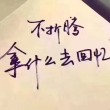 不折腾
拿什么去回忆